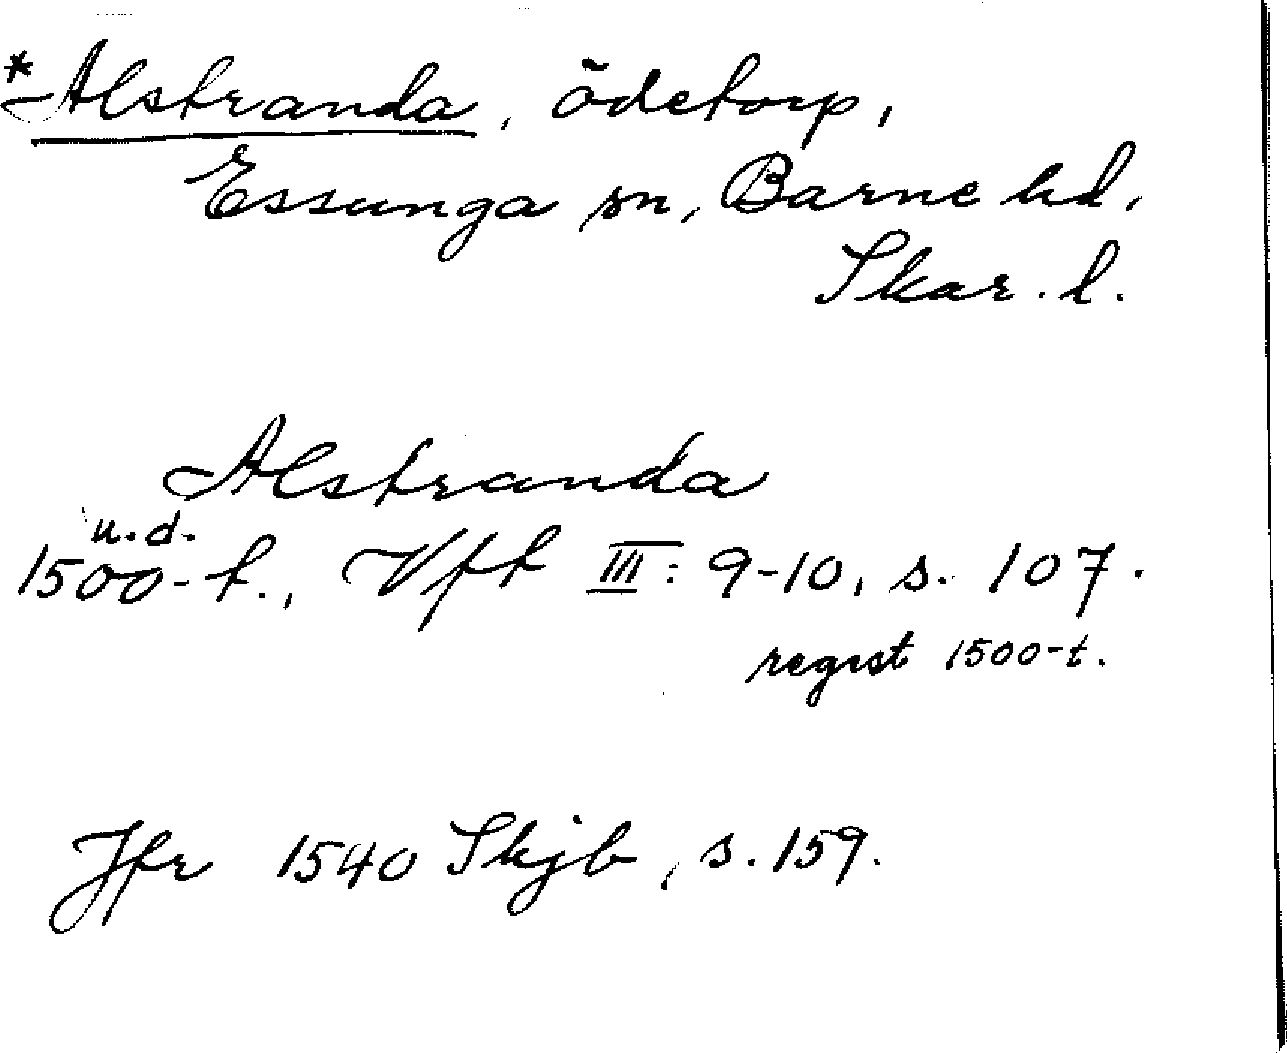 *Alstranda, ödetorp,
Essunga sn, Barne hd,
Skar. l.
Alstranda
u.d.
1500-t., Vft III: 9-10, s. 107.
regist 1500-t.
Jfr 1540 Skjb, s. 159.